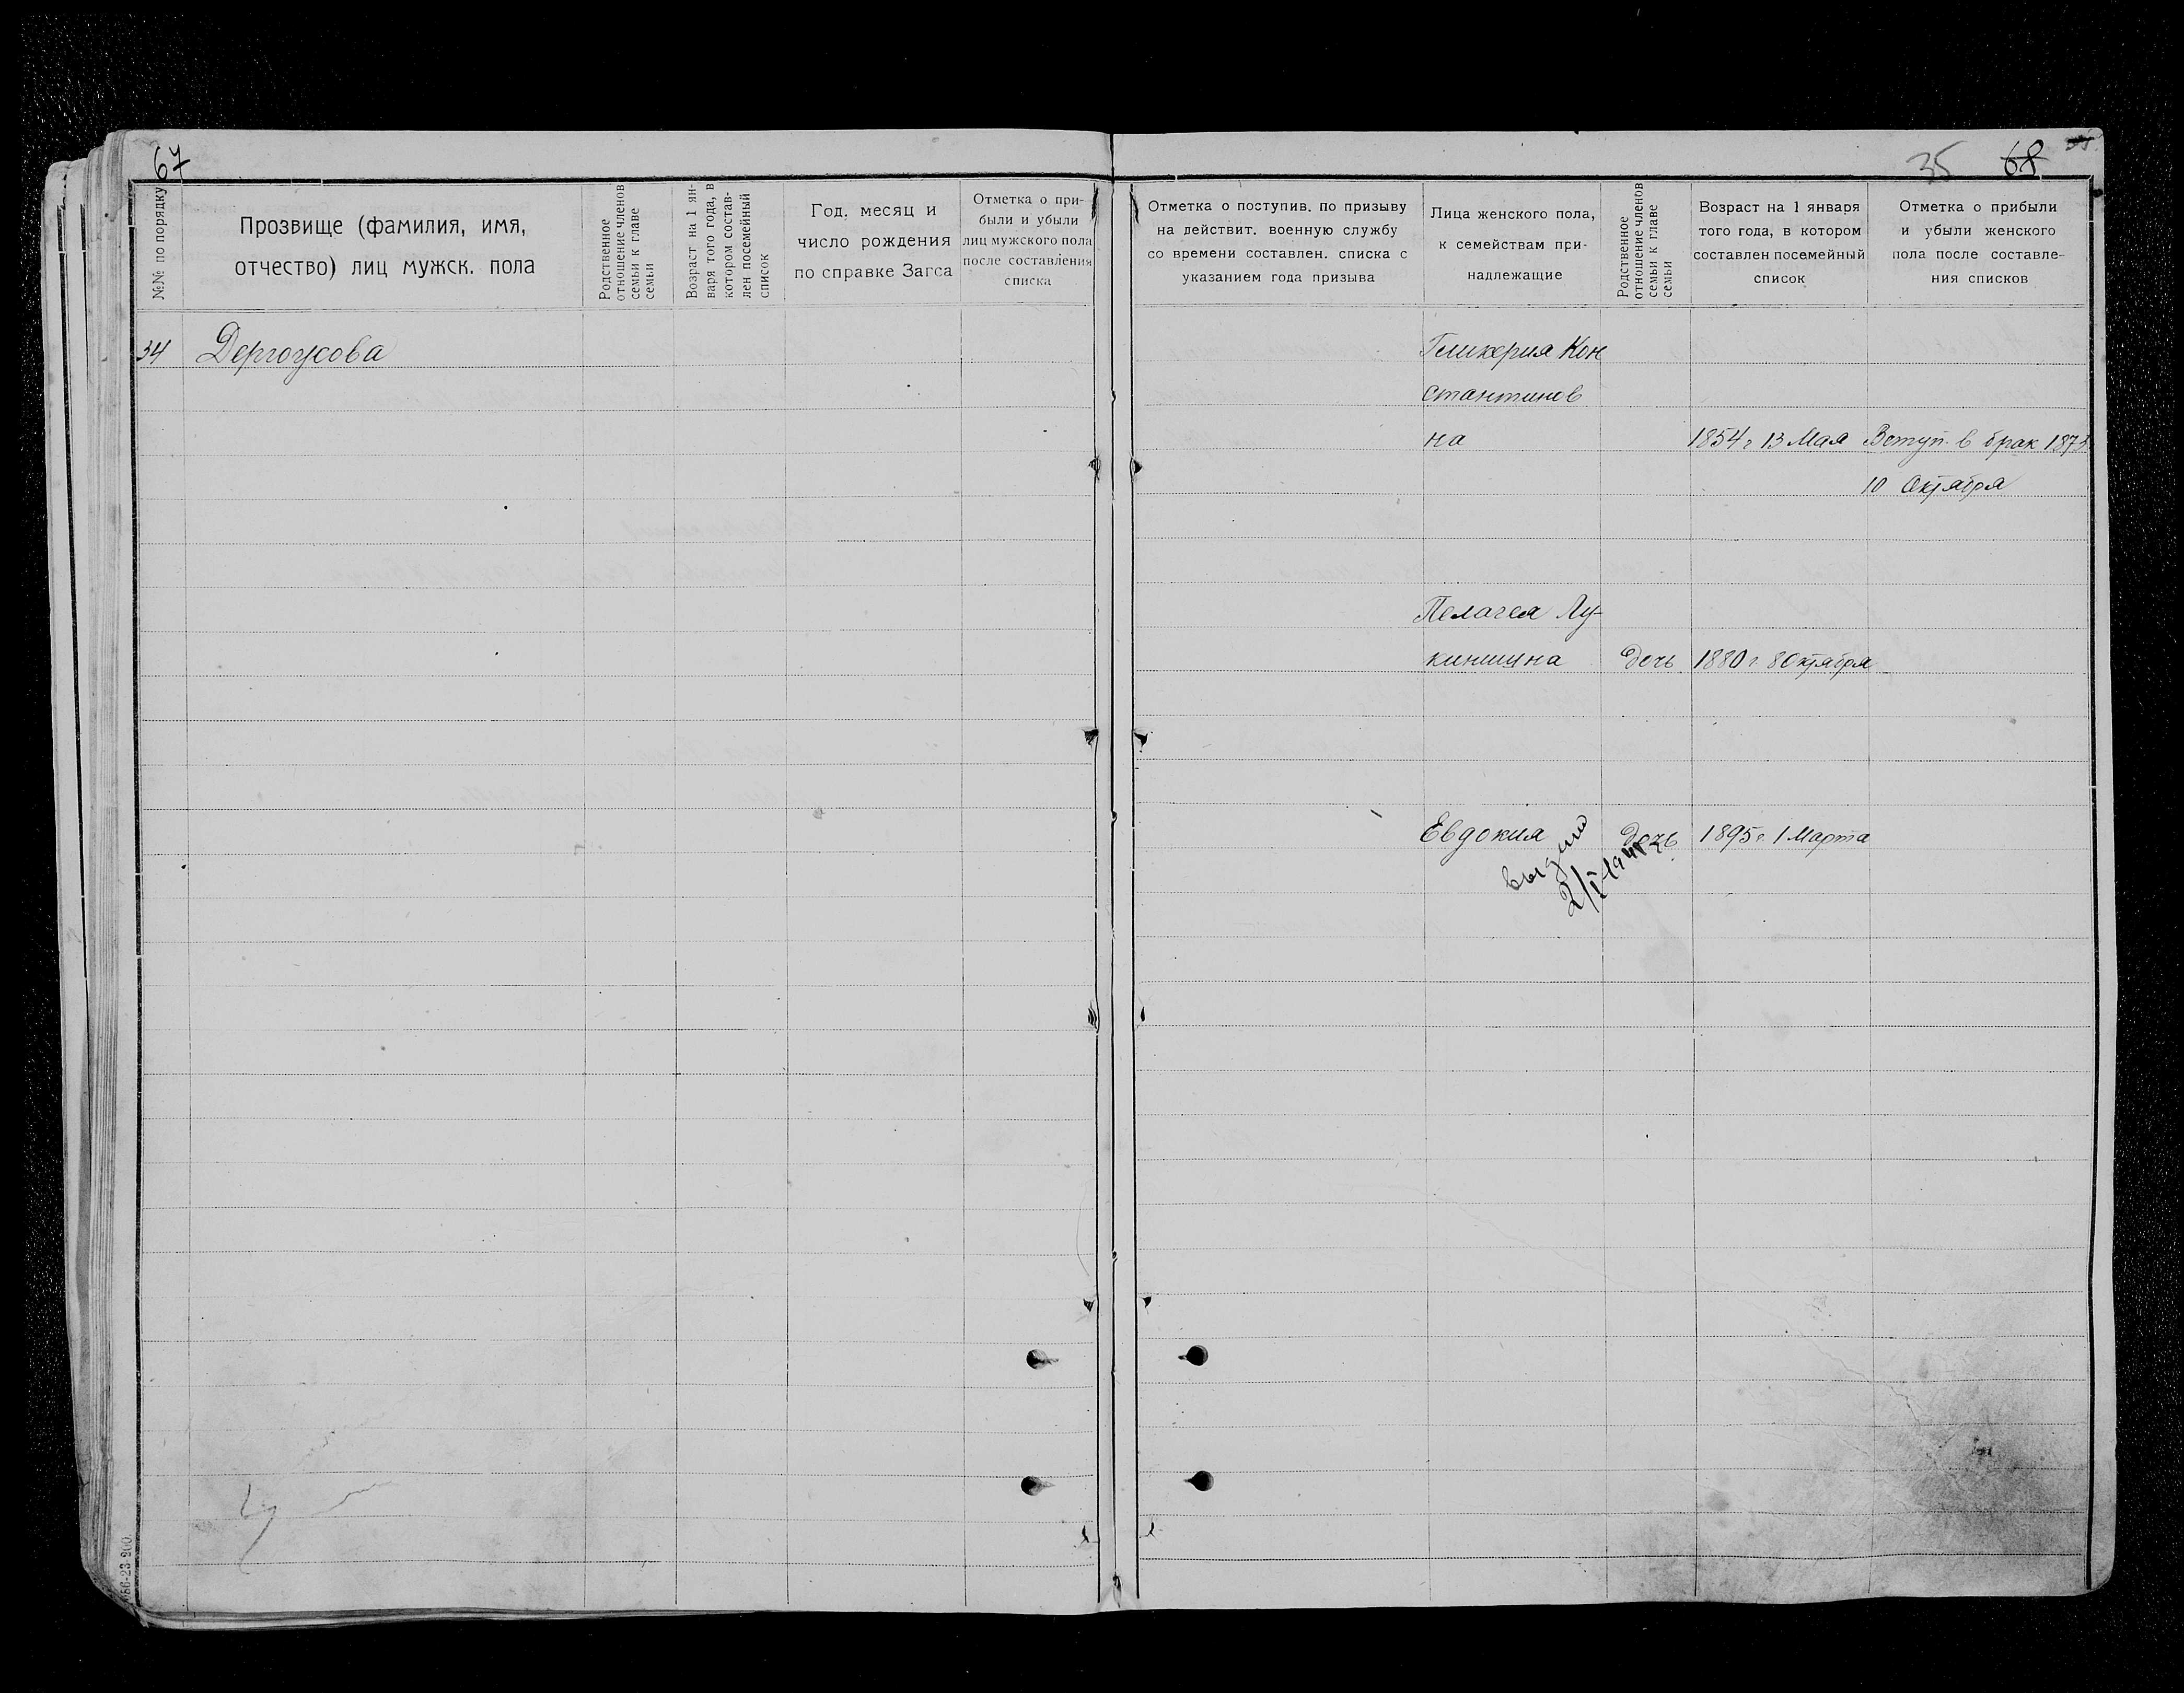 67
№№ по порядку
Прозвище (фамилия, имя,
отчество) лиц мужск. пола
Родственное
отношение членов
семьи к главе
семьи
Возраст на 1 ян-
варя того года, в
котором состав-
лен посемейный
список
Год, месяц и
число рождения
по справке Загса
Отметка о при-
были и убыли
лиц мужского пола
после составления
списка
34 Дергоусова
86-23-200
35 68
Отметка о поступив. по призыву
на действит. военную службу
со времени составлен. списка с
указанием года призыва
Лица женского пола,
к семействам при-
надлежащие
Родственное
отношение членов
семьи к главе
семьи
Возраст на 1 января
того года, в котором
составлен посемейный
список
Отметка о прибыли
и убыли женского
пола после составле-
ния списков
Гликерия Кон
стантинов
на 1854 г 13 Мая Вступ. в брак 1873
10 Октября
Пелагея Лу-
кинишна дочь 1880 г. 8 Октября
Евдокия дочь 1895 г. 1 Марта